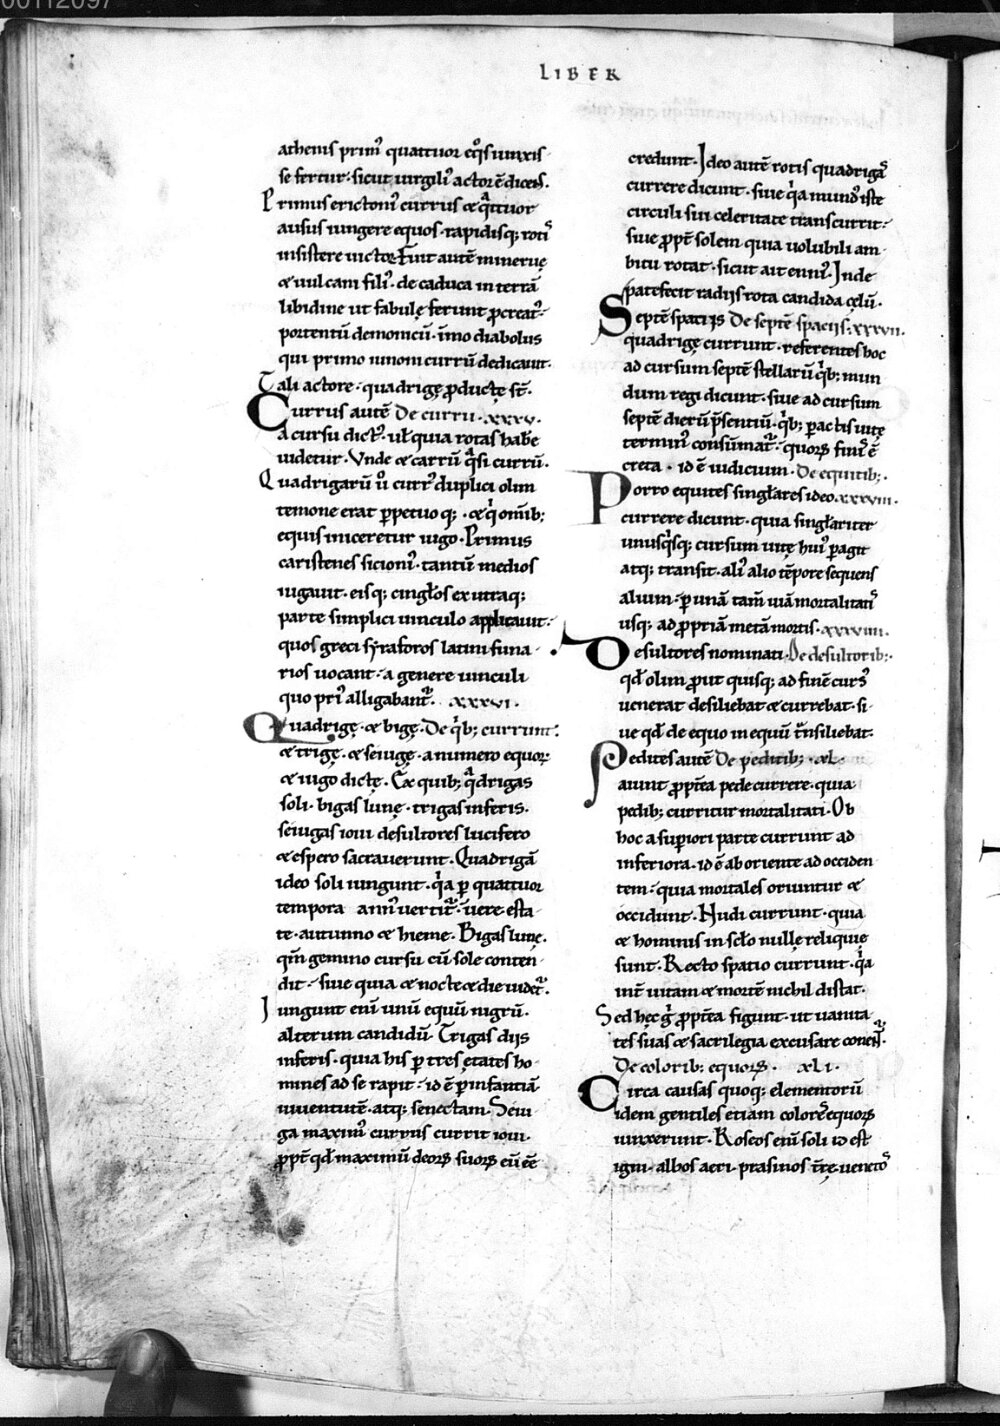 00112097
LIBER
athenis prim᾽ quattuor eq̊s iunxis
se fertur· sicut uirgili᾽ actor ē dicens.
Primus erictoni᾽ currus & q̄ttuor
ausus iungere equos· rapidisq; roti᾽
insistere uictor. Fuit autē mineruę
& uulcani fili᾽· de caduca in terrā
libidine ut fabulę ferunt p̱creat᾽·
portentū demonicū· īmo diabolus
qui primo iunoni currū dedicauit.
Tali actore· quadrigę p̱ductę st̄·
Currus autē De curru· xxxv.
a cursu dict᾽· uł quia rotas habe
uidetur· Vnde & carrū q̄si currū.
Quadrigarū u̇ curr᾽ duplici olim
temone erat ꝑpetuo q;· & q̇ omīb;
equis iniceretur iugo· Primus
caristenes sicioni᾽· tantū medios
iugauit· eisq; cinglo̅s ex utraq;
parte simplici uinculo applicauit·
quos greci syraforos latini funa
rios uocant· a genere uinculi
quo pri᾽ alligabant᾽. xxxvi·
Quadrigę· & bigę· De q̇b; currunt·
& trigę· & seiugę· a numero equoꝝ
& iugo dictę. Ex quib; q̄drigas
soli· bigas lunę· trigas inferis·
seiugas ioui desultores lucifero
& espero sacrauerunt· Quadrigā
ideo soli iungunt· q̇a ꝑ quattuor
tempora anni᾽ uertit᾽· uere· esta
te· autunno & hieme· Bigas lunę·
qm̄ gemino cursu cū sole conten
dit· siue quia & nocte & die uidet᾽·
Iungunt eni᾽ unū equū nigrū·
alterum candidū· Trigas diis
inferis· quia his ꝑ tres ętates ho
mines ad se rapit· id ē ꝑ infantiā
iuuentutē· atq; senectam· Seiu
ga maxim᾽ currus currit ioui·
ꝓpt̄ qd̄ maximū deoꝝ suoꝝ eū eē
credunt· Ideo autē rotis quadrigas᾽
currere dicunt· siue q̇a mund᾽ iste
circuli sui celeritate transcurrit·
siue ꝓpt̄ solem quia uolubili am
bitu rotat· sicut ait enni᾽· Inde
patefecit radiis rota candida cęlū·
Septē spaciis De septē spaciis· xxxvii.
quadrigę currunt· referentes hoc
ad cursum septē stellarū q̇b; mun
dum regi dicunt· siue ad cursum
septē dierū p̄sentiū· q̇b; ꝑactis uitę
termin᾽ consūmat᾽· quoꝝ fini᾽ ē
creta· id ē iudicium· De equitib;·
Porro equites singłares ideo· xxxviii·
currere dicunt· quia singłariter
unusq̇sq; cursum uitę hui᾽ ꝑagit
atq; transit· ali᾽ alio tēpore sequens
alium· ꝑ unā tam̄ uiā mortalitati᾽
usq; ad ꝓpriā metā mortis· xxxviiii·
Desultores nominati· De desultorib;·
qd̄ olim ꝓut quisq; ad finē curs᾽
uenerat desiliebat & currebat· si
ue qd̄ de equo in equū tn̄siliebat·
Pedites autē De peditib;· xl·
aiunt ꝓpt̄ea pede currere· quia
pedib; curritur mortalitati· Ob
hoc a suꝑiori parte currunt ad
inferiora· id ē ab oriente ad occiden
tem· quia mortales oriuntur &
occidunt· Nudi currunt· quia
& hominis in scło nullę reliquię
sunt· Recto spatio currunt· q̇a
int̄ uitam & mortē nichil distat·
Sed hęc g̊ ꝓpt̄ea figunt· ut uanita
tes suas & sacrilegia excusare conent᾽·
De colorib; equoꝝ· xli·
Circa causas quoq; elementorū
idem gentiles etiam colores equoꝝ
iunxerunt· Roseos eni᾽ soli id est
igni· albos aeri· prasinos t̄rę· ueneto᾽